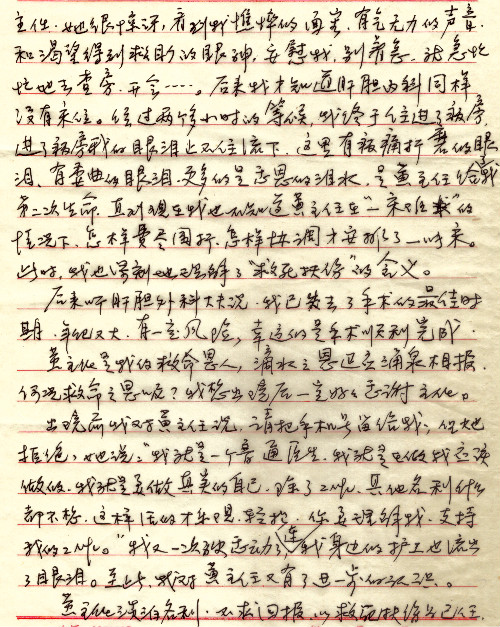 主任. 她很惊讶, 看到我憔悴的面容. 有气无力的声音.
和渴望得到救助的眼神, 安慰我, 别着急. 就急忙
忙地去查房. 开会……. 后来我才知道肝胆内科同样
没有床位。经过两个多小时的等候, 我终于住进了病房,
进了病房我的眼泪止不住流下. 这里有被病痛折磨的眼
泪, 有委曲的眼泪. 更多的是感恩的泪水, 是黄主任给我
第二次生命, 直到现在我也不知道黄主任在“一床难求”的
情况下, 怎样费尽周折, 怎样协调才安排了一张床。
此时, 我也深刻地理解了“救死扶伤”的含义。
后来听肝胆外科大夫说. 我已失去了手术的最佳时
期. 年纪又大. 有一定风险, 幸运的是手术顺利完成.
黄主任是我的救命恩人, 滴水之恩迎泉涌泉相报.
何况救命之恩呢? 我想出院后一定好好感谢主任。
出院前我对黄主任说, 请把手机号留给我, 但她
拒绝, 她说:“我就是一个普通医生. 我就是在做我应该
做的. 我就是要做真美的自己. 除了工作, 其他名利什么
都不想. 这样活的才乐观. 轻松. 你要理解我. 支持
我的工作。”我又一次被感动了连我身边的护工也流出
了眼泪。至此, 我对黄主任又有了进一步的认识。
黄主任淡泊名利. 不求回报. 以救死扶伤为己任.